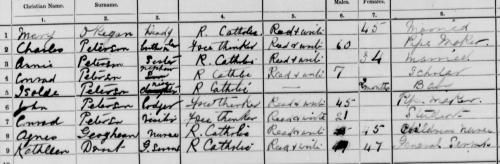 Christian Name. Surname. Males. Females.
1. 2. 3. 4. 5. 6. 7. 8.
1 Mary O'Regan Head R. Catholic Read & write 45 Married
2 Charles Peterson Free thinker Read & write 60 Pipe Maker
3 Annie Peterson Sister R. Catholic Read & write 34 Married
4 Conrad Peterson R. Catholic Read & write 7 Scholar
5 Isolde Peterson R. Catholic — months
6 John Peterson Lodger Free thinker Read & write 45 Pipe maker
7 Conrad Peterson Visitor Free thinker Read & write 21 Student
8 Agnes Geoghean Nurse R. Catholic Read & write 45 Children nurse
9 Kathleen G. Servt R. Catholic Read & write 47 General Servant